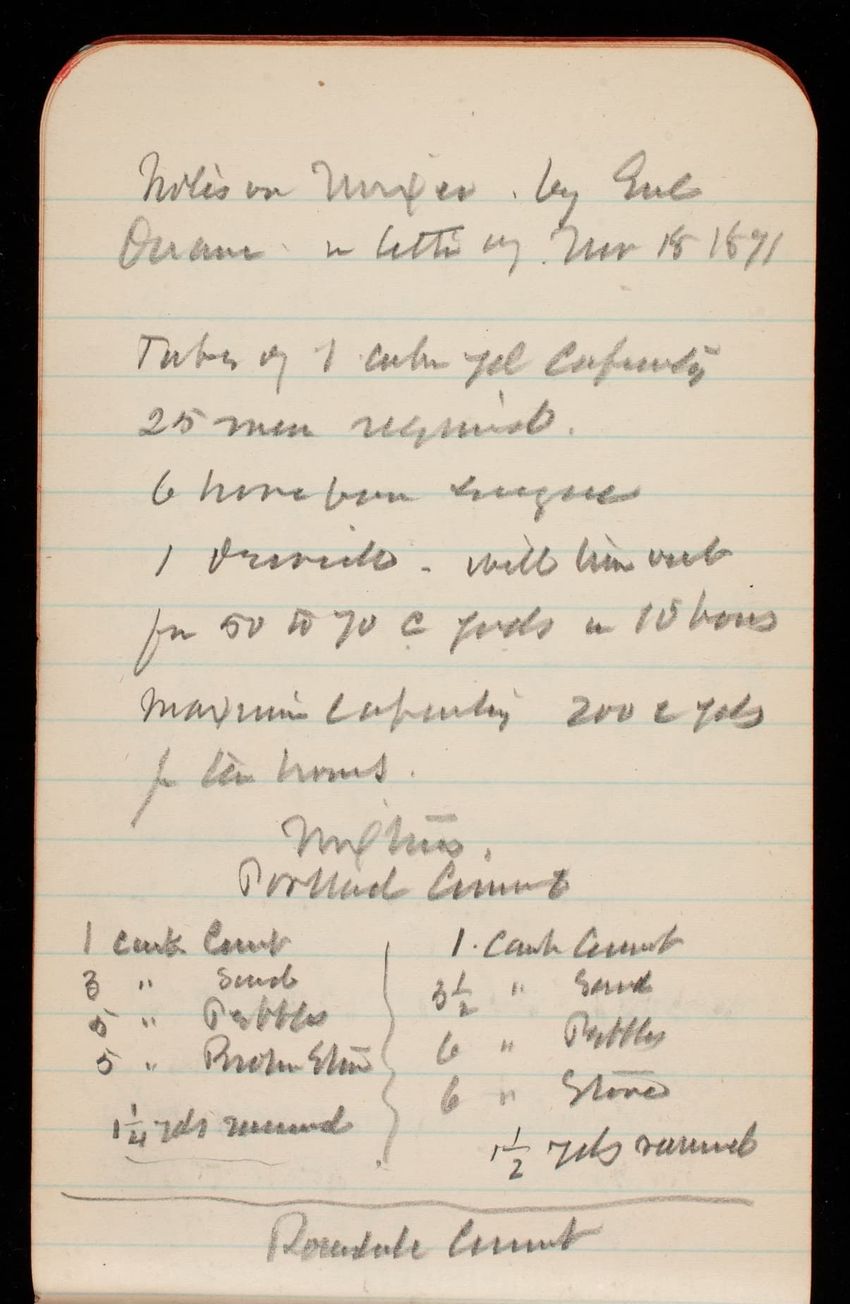 Notes on Mixer. by Genl
Duane. in letter of Nov 18 1891
Tubes of 1 cube yd capacity
25 men required.
6 horse power engine
1 derrick. will
for 50 to 70 c yards in 10 hours
Maximum capacity 200 c yds
for ten hours.
Mixture.
Portland Cement
1 cask Cemt
3 " Sand
5 " Pebbles
5 " Broken Stone
1 1/4 yds rammed
1. cask Cement
3 1/2 " Sand
6 " Pebbles
6 " Stone
1 1/2 yds rammed
Rosendale Cement